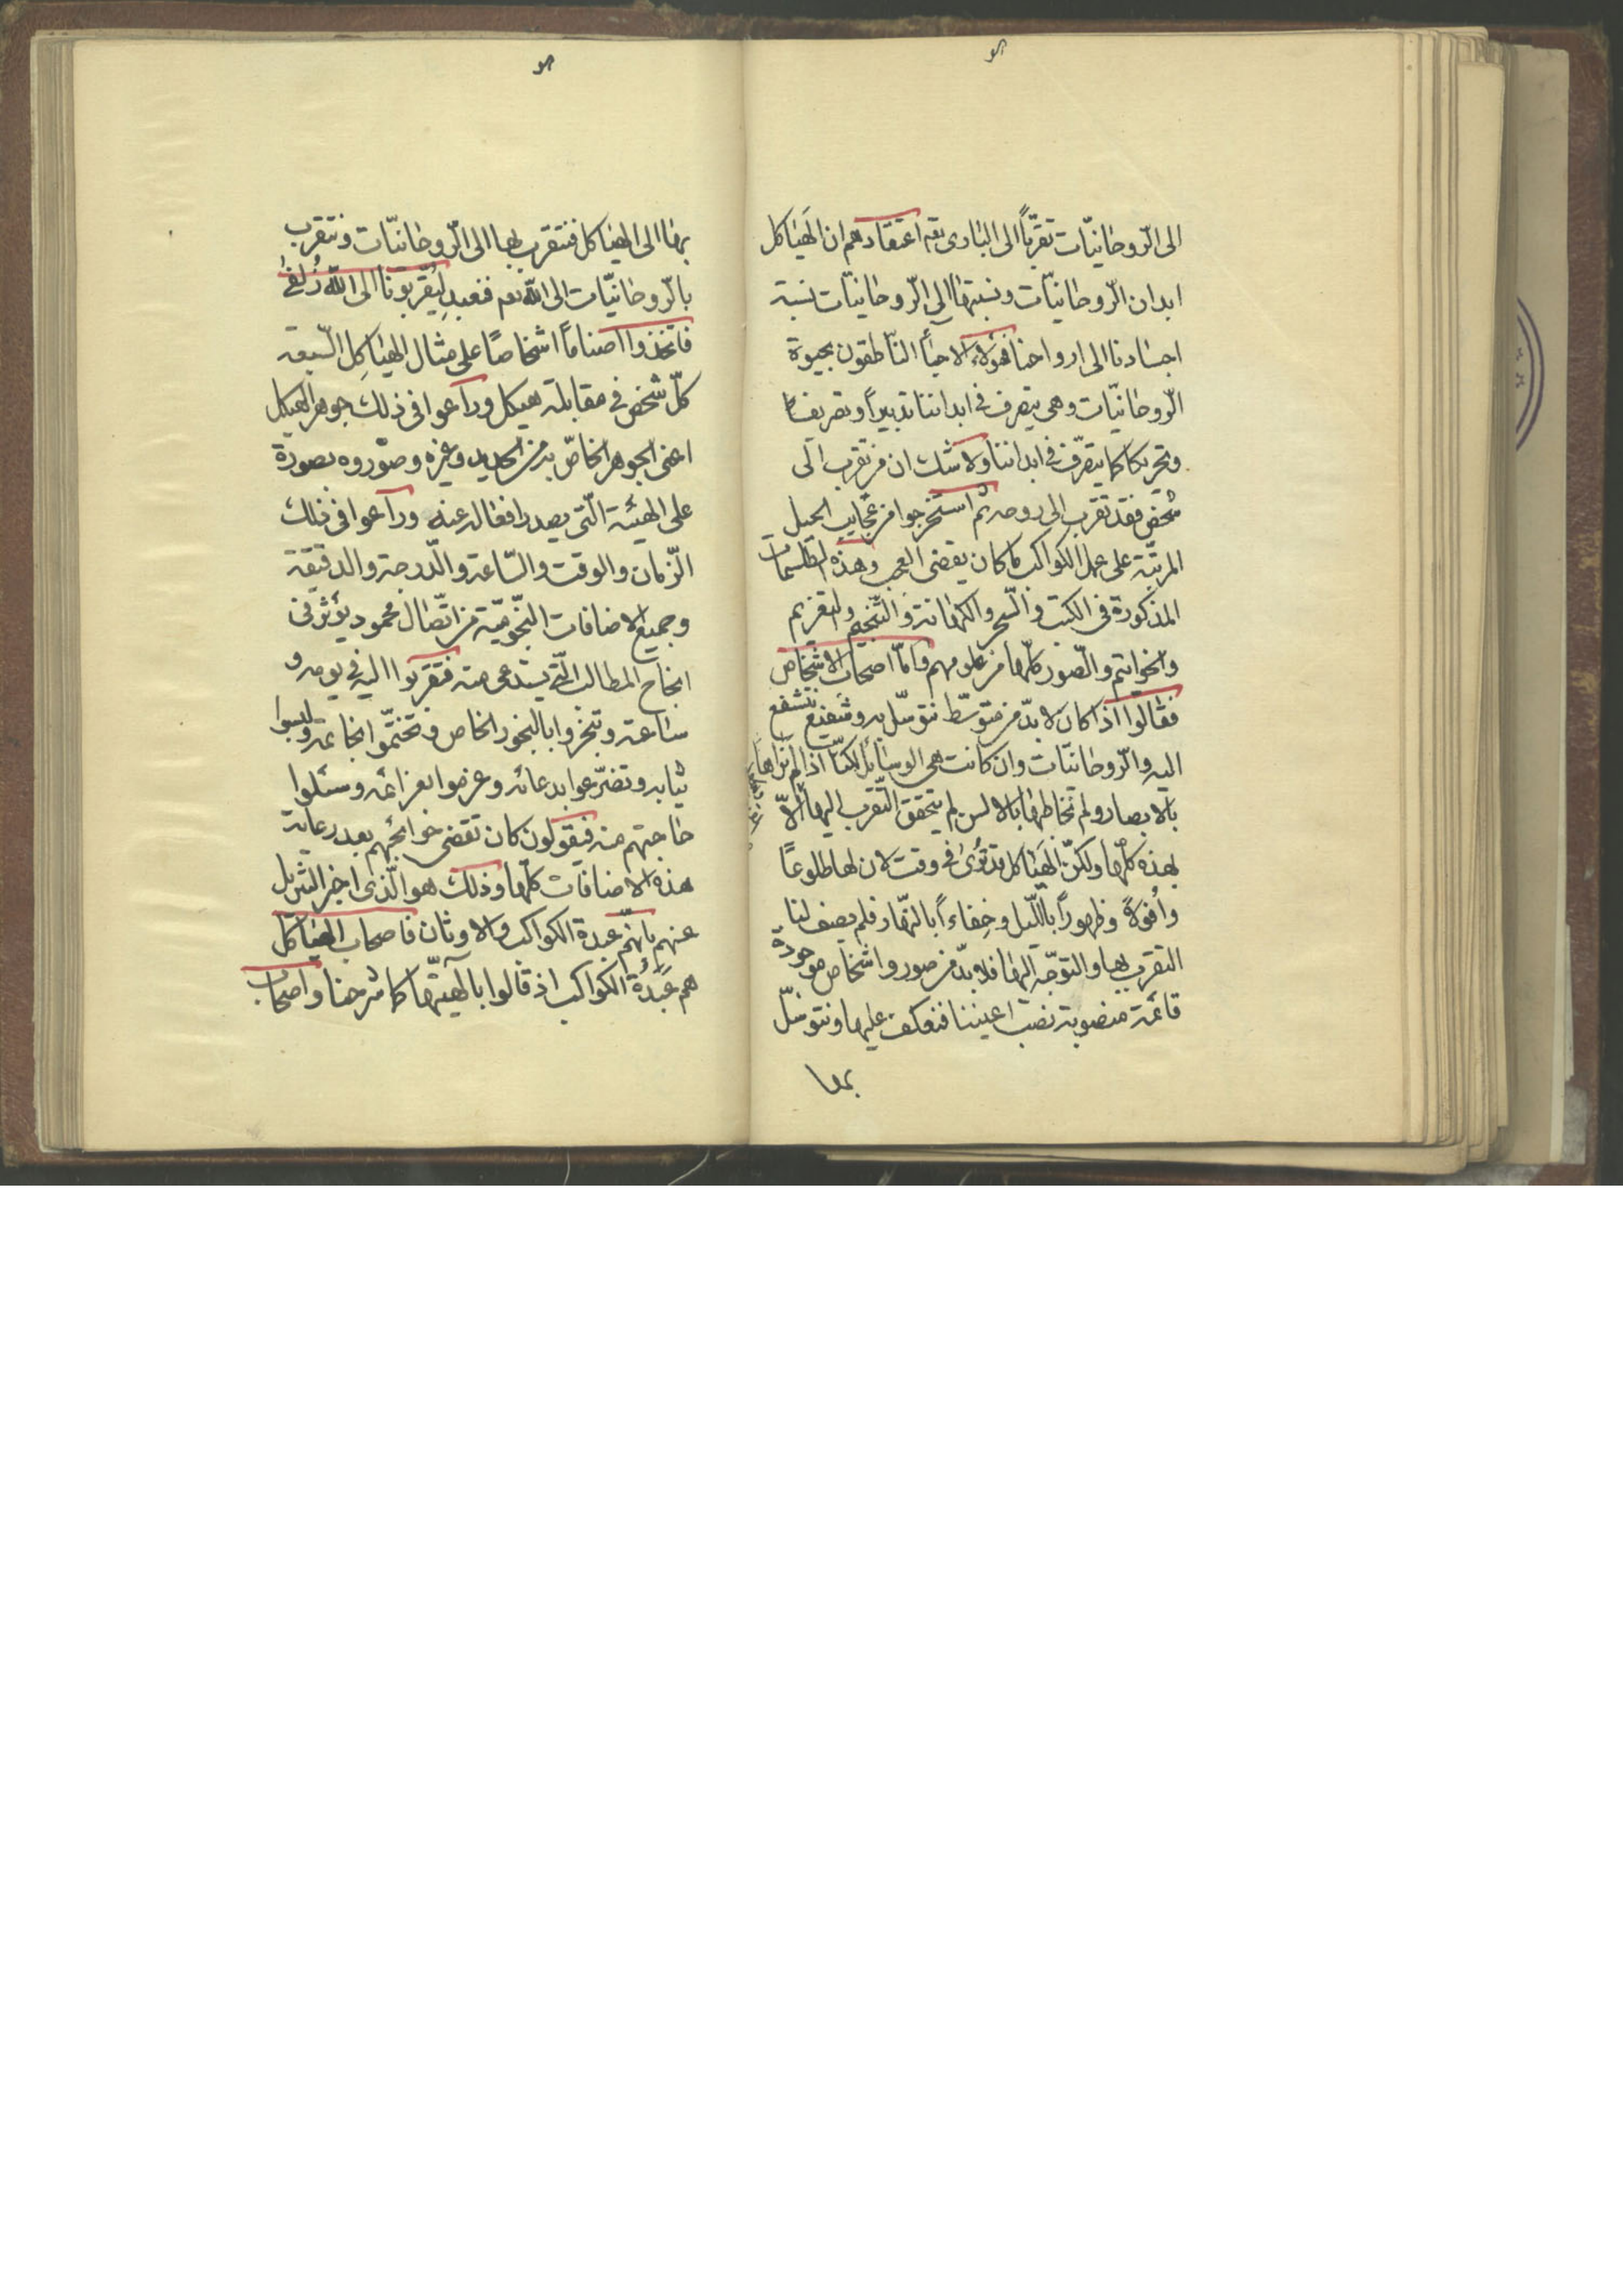 هو
الى الرّوحانيّات تقرّباً الى البارى تع اعتقادهم ان الهَياكل
ابدان الرّوحانيّات ونسبتها الى الرّوحانيّات نسبة
اجسادنا الى ارواحنا فهؤلاء الاحياء النّاطقون بحيوة
الرّوحانيّات وهى يتصرف فى ابداننا تدبيراً وتصريفا
وتحريكا كما يتصرّف فى ابداننا ولا شك ان من تقرب الى
شخص فقد تقرب الى روحه ثم استخرجوا من عجايب الحيل
المرتّبة على عمل الكواكب ما كان يقضى العجب وهذه الطلسمات
المذكورة فى الكتب والسّحر والكهانة والتّنجيم والتعزيم
والخواتيم والصّور كلّها من علومهم وامّا اصحاب الاشخاص
فقالوا اذا كان لا بدّ من متوسّط نتوسّل به وشفيع نتشفع
اليه والرّوحانيّات وان كانت هى الوسائل لكنّا اذا لم نراها
بالابصار ولم نخاطبها بالالسن لم يتحقق التّقرب اليها الّا
بهذه كلّها ولكنّ الهَياكل قد تُرىٰ فى وقت لان لها طلوعًا
واُفولاً وظهوراً باللّيل وخِفاءاً بالنّهار فلم يصف لنا
التقرب بها والتوجّه اليها فلا بدّ من صور واشخاص موجودة
قائمة منصوبة نصب اعيننا فنعكف عليها ونتوسّل
بها
هو
بها الى الهياكل فنتقرب بها الى الرّوحانيّات ونتقرب
بالرّوحانيّات الى اللّه تعم فنعبد لِيُقرّبونا الى اللّه زُلفىٰ
فاتّخذوا اصناماً اشخاصًا على مثال الهياكِل السّبعة
كلّ شخص فى مقابلة هيكل وراعوا فى ذلك جوهر الهيكل
اعنى الجوهر الخاصّ به من الحديد وغيره وصوّروه بصورة
على الهيئة الّتى يصدر افعاله عنه وراعوا فى ذلك
الزّمان والوقت والسّاعة والدّرجة والدقيقة
وجميع الاضافات النّجوميّة من اتّصال محمود يؤثر فى
انجاح المطالب الّتى يستدعى منه فتقربوا اليه فى يومه و
ساعته وتبخروا بالبخور الخاص وتختّموا بخاتمه ولبسوا
ثيابه وتضرّعوا بدعائه وعزموا بعزائمه وسئلوا
حاجتهم منه فيقولون كان تقضى حوائجهم بعد رعاية
هذه الاضافات كلّها وذلك هو الّذى اخبر التنزيل
عنهم بانّهم عبدة الكواكب والاوثان فاصحاب الهياكل
هم عَبَدَةُ الكواكب اذ قالوا بالٓهيّتها كما شرحنا واصحاب